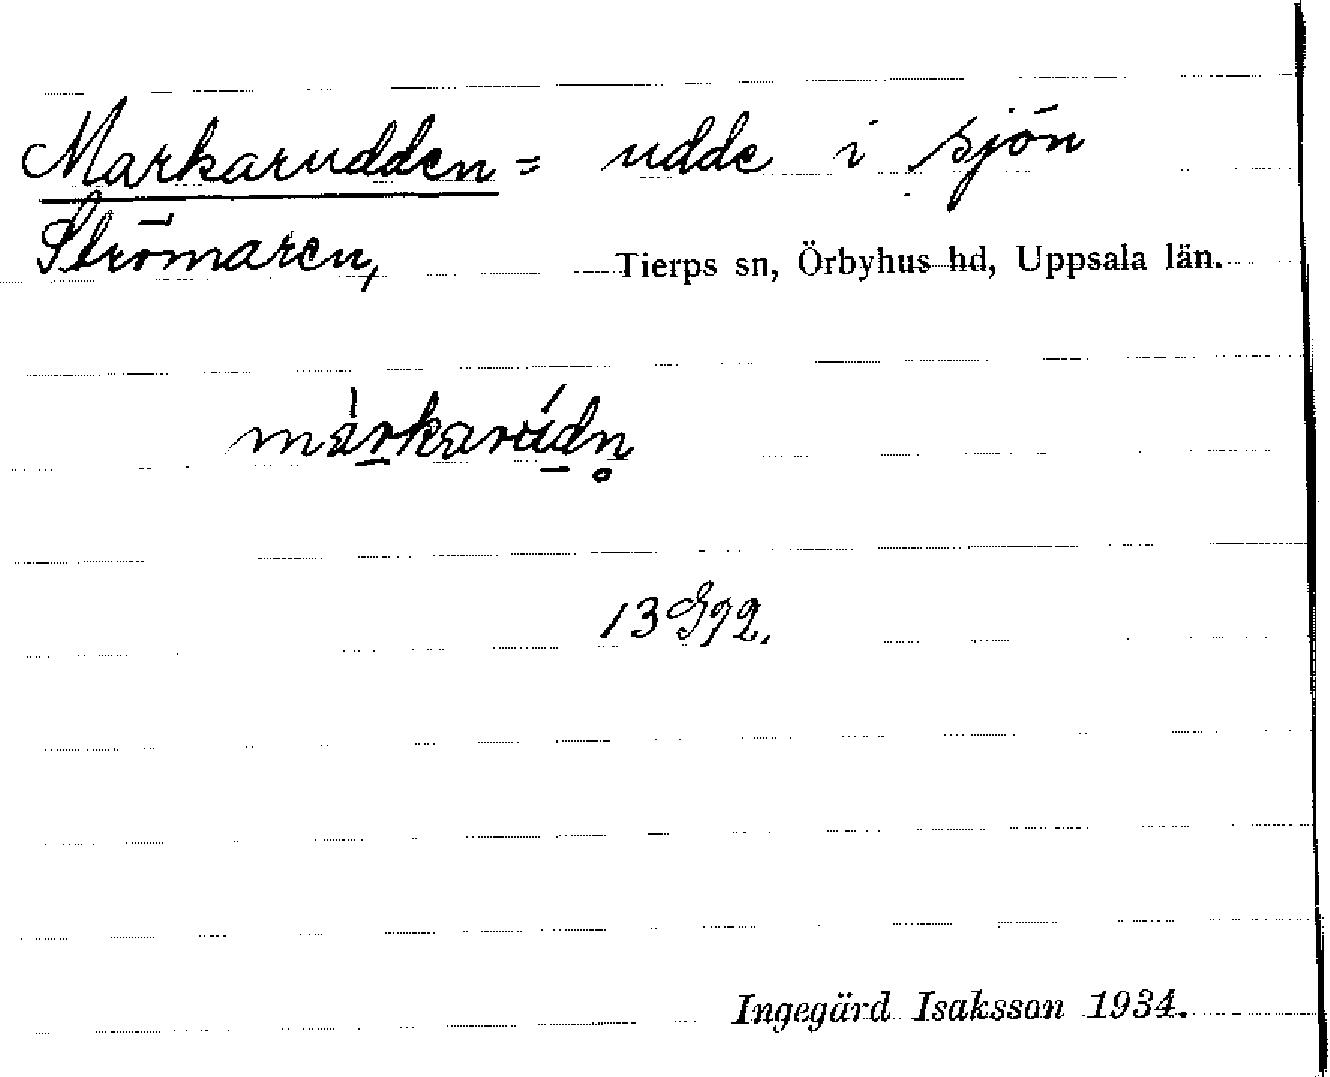 Markarudden = udde i sjön
Strömaren, Tierps sn, Örbyhus hd, Uppsala län.
màrkarúdn̥
13 G 92.
Ingegärd Isaksson 1934.